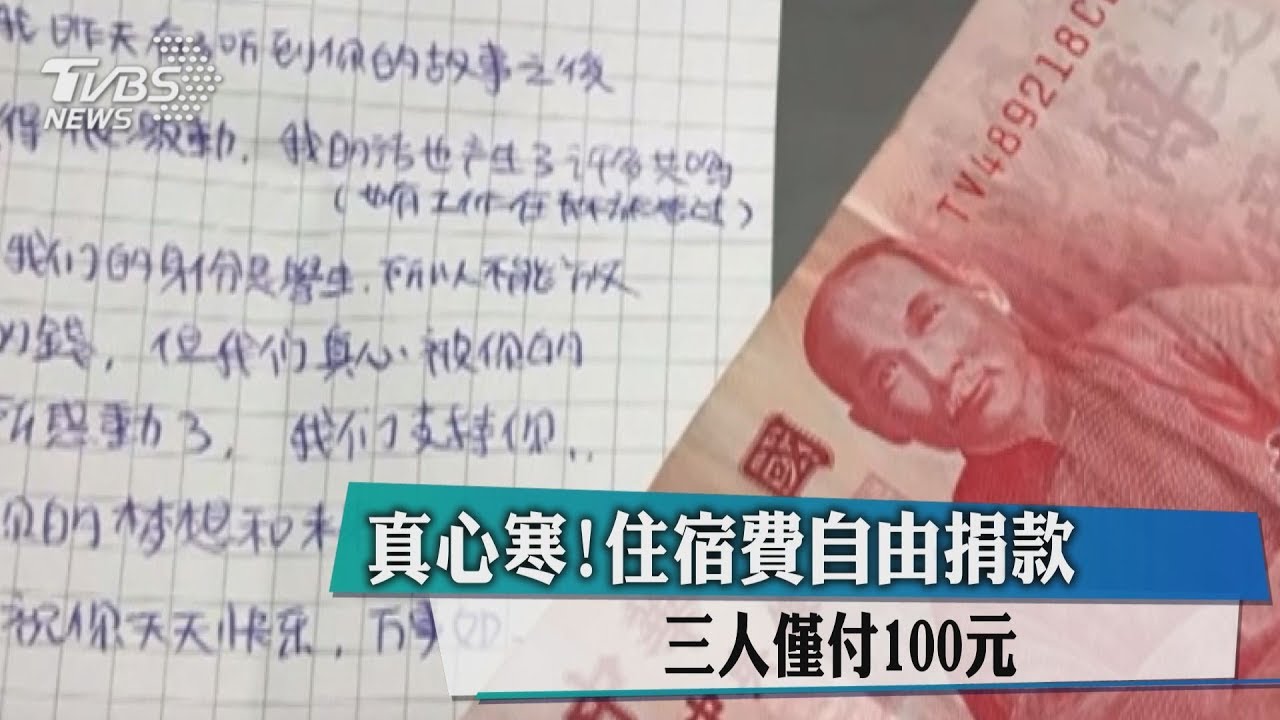 TVBS
NEWS
我昨天 听到你的故事之後
得很感動，我的话也产生了许多共鸣
（也有工作
我们的身份是學生，所以不能
的錢，但我们真心被你的
所感動了，我们支持你..
你的梦想和
祝你天天快乐，万事如
TV489218C
國
真心寒!住宿費自由捐款
三人僅付100元